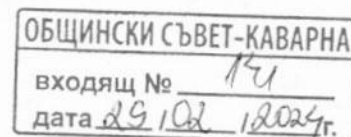 ОБЩИНСКИ СЪВЕТ-КАВАРНА
входящ № 141
дата 29 / 02 / 2024г.